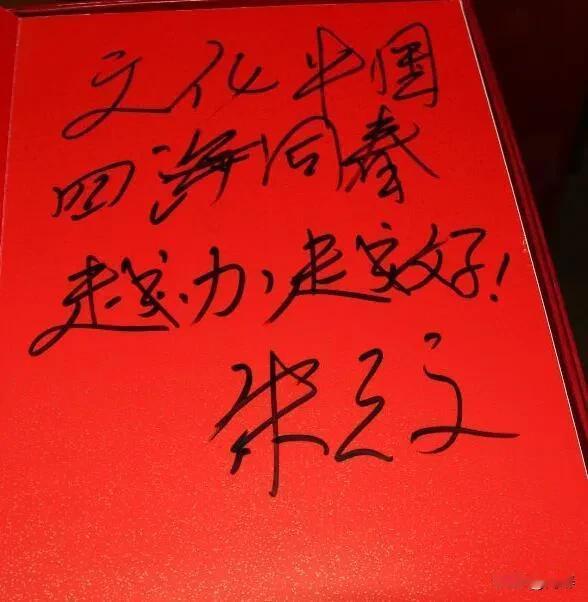 文化中国
四海同春
越办越好！
朱立文